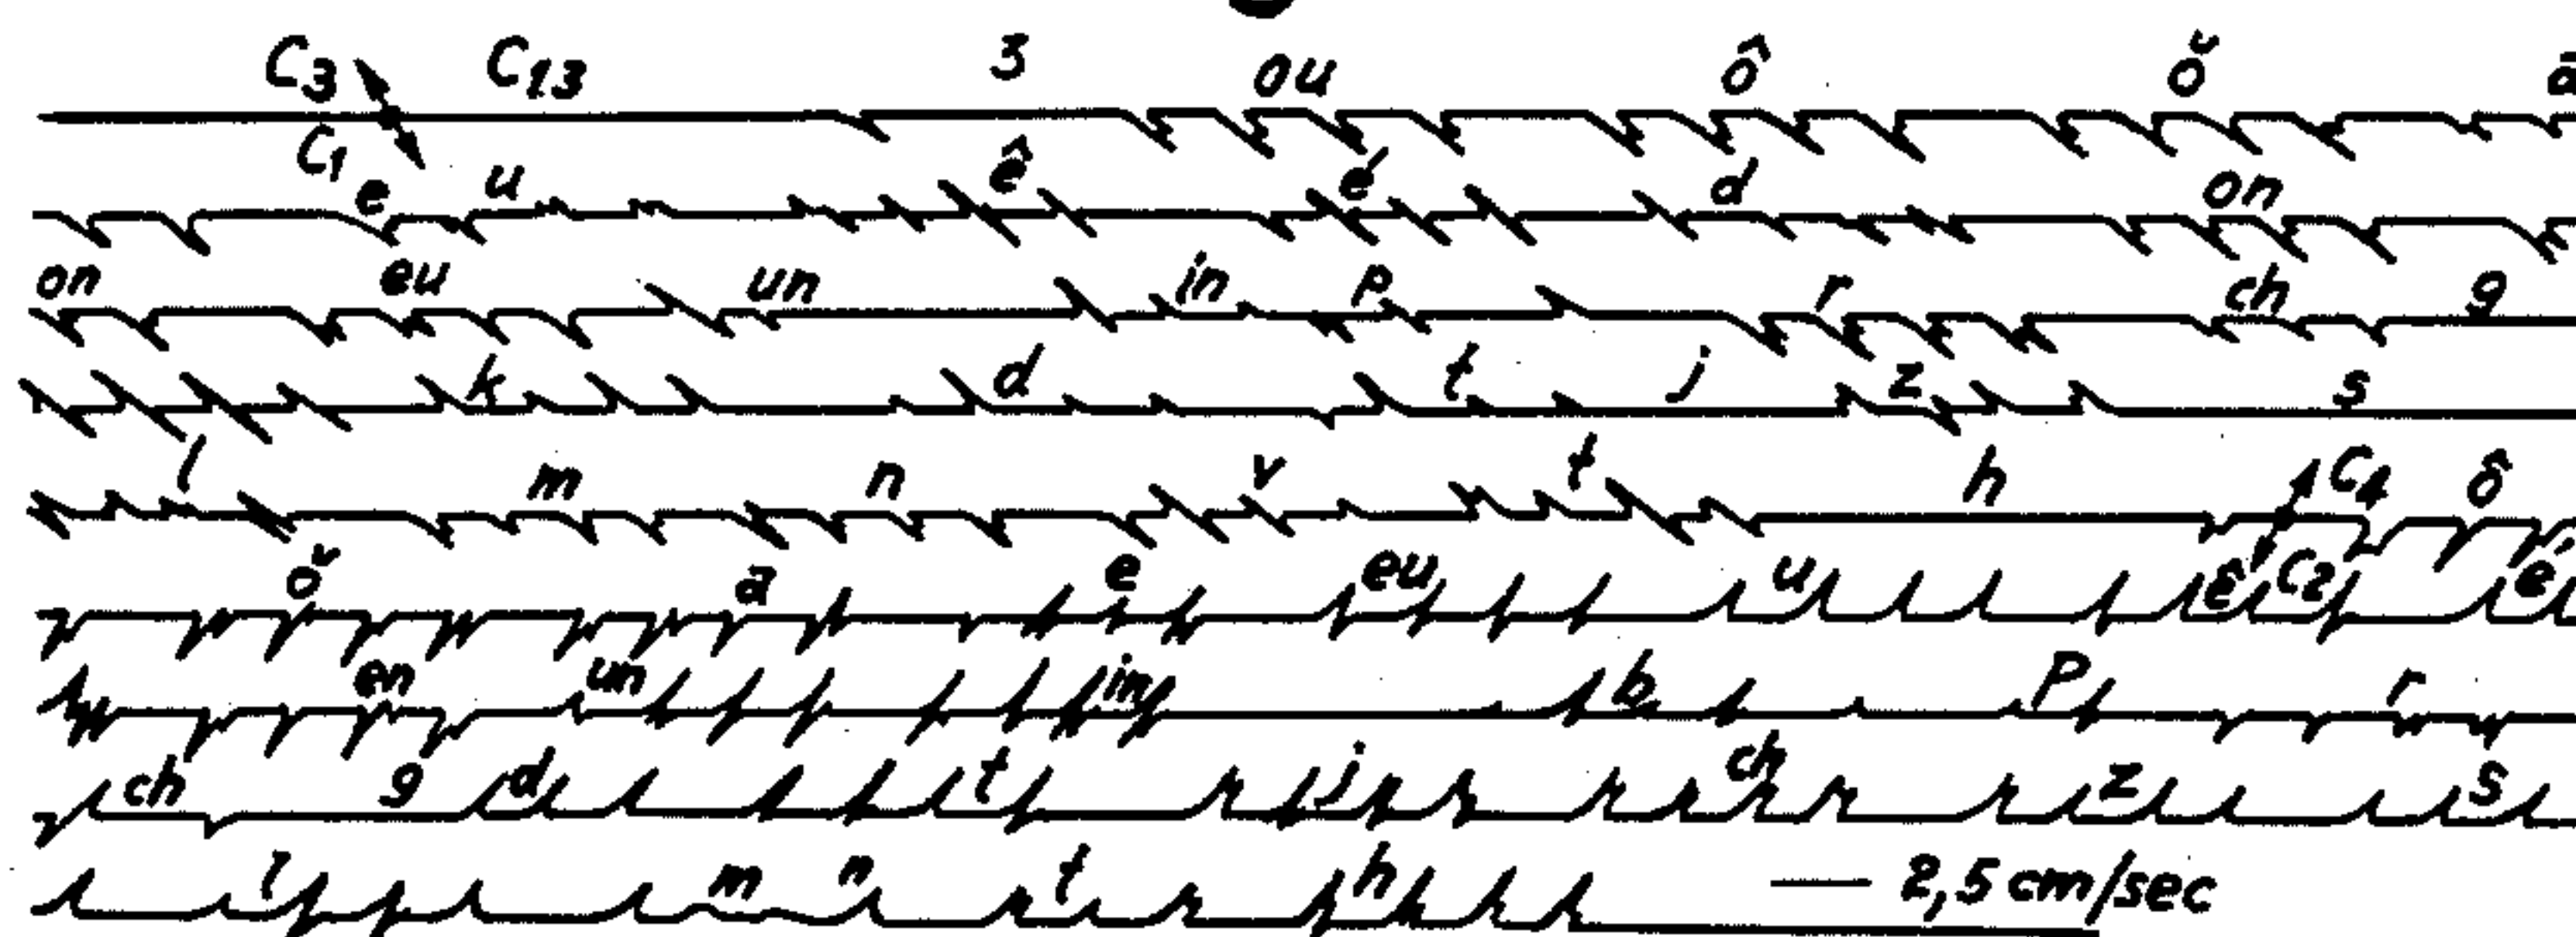 C3 C13 3 ou ô ŏ a
C1 e u ê é d on
on eu un in p r ch g
k d t j z s
l m n v t h C4 ô
ŏ a e eu u ê C2 é
en un in b p r
ch g d t j ch z s
l m n t h 2,5 cm/sec